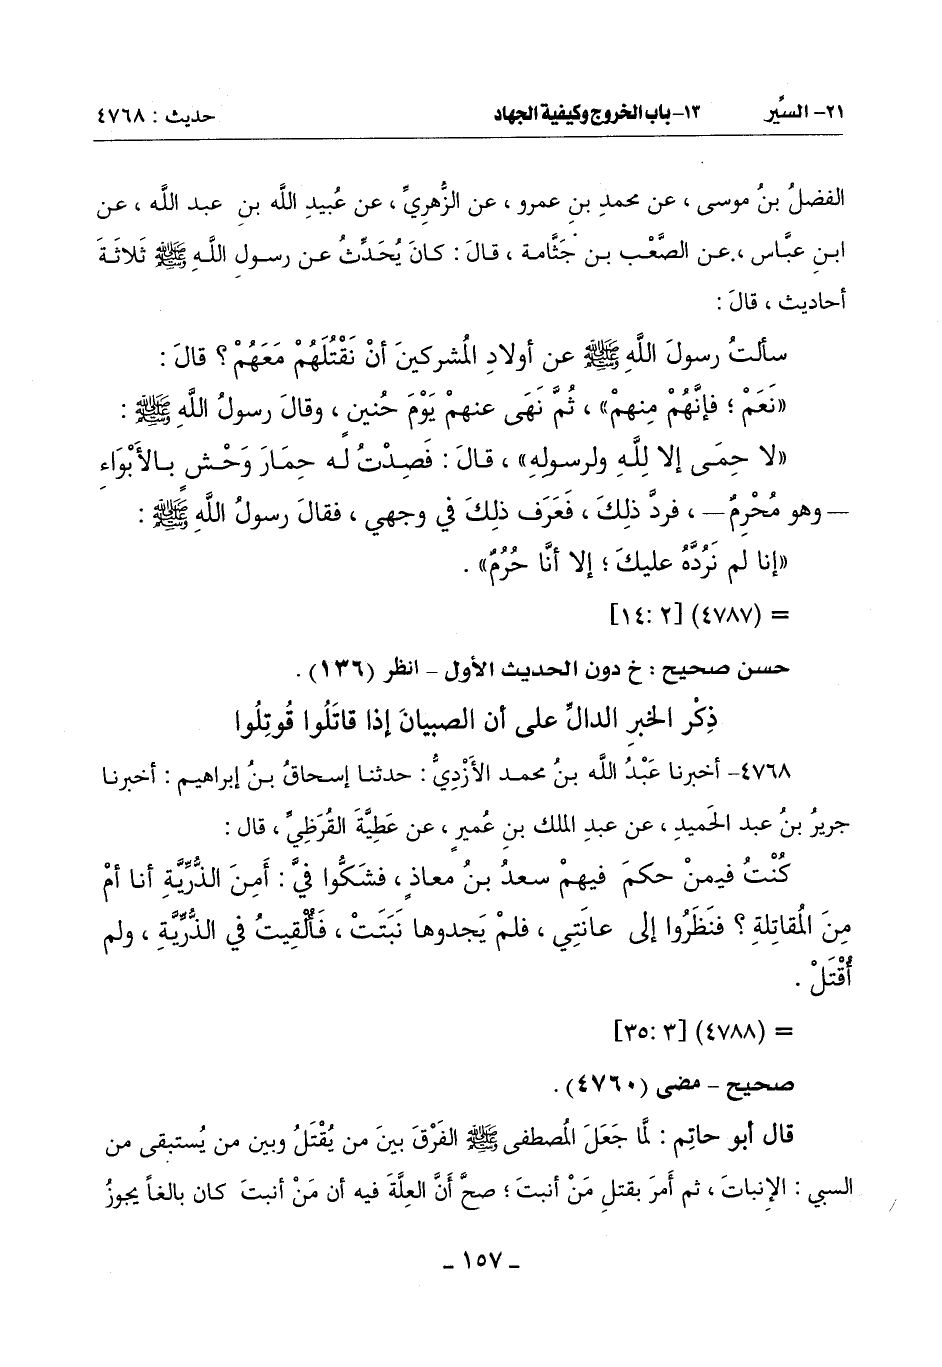 ٢١- السِّير ١٣- باب الخروج وكيفية الجهاد حديث : ٤٧٦٨
الفضلُ بنُ موسى ، عن محمدِ بنِ عمرو ، عن الزُّهريِّ ، عن عُبيدِ اللَّه بنِ عبد اللَّه ، عن
ابنِ عبَّاس ، عن الصَّعْب بن جَثَّامة ، قالَ : كانَ يُحَدِّثُ عن رسولِ اللَّهِ ﷺ ثَلاثَةَ
أحاديث ، قالَ :
سألتُ رسولَ اللَّهِ ﷺ عن أولادِ المُشركينَ أنْ نَقْتُلَهُمْ مَعَهُمْ ؟ قالَ :
«نَعَمْ ؛ فإنَّهُمْ مِنهمْ» ، ثُمَّ نَهَى عنهمْ يَوْمَ حُنين ، وقالَ رسولُ اللَّهِ ﷺ :
«لا حِمَى إلا لِلَّهِ ولرسولِهِ» ، قالَ : فَصِدْتُ لَه حِمارَ وَحْشٍ بالأَبْوَاءِ
— وهو مُحْرِمٌ — ، فردَّ ذلِكَ ، فَعَرَف ذلِكَ في وجهي ، فقالَ رسولُ اللَّهِ ﷺ :
«إنا لم نَرُدَّهُ عليكَ ؛ إلا أنَّا حُرُمٌ» .
= (٤٧٨٧) [٢ :١٤]
حسن صحيح : خ دون الحديث الأول - انظر (١٣٦) .
ذِكْر الخبرِ الدالِّ على أن الصبيانَ إذا قاتَلُوا قُوتِلُوا
٤٧٦٨- أخبرنا عَبْدُ اللَّه بنُ محمد الأَزْدِيُّ : حدثنا إسحاقُ بنُ إبراهيم : أخبرنا
جريرُ بنُ عبد الحَميدِ ، عن عبدِ الملك بنِ عُميرٍ ، عن عَطِيَّةَ القُرَظِيِّ ، قال :
كُنْتُ فيمنْ حكمَ فيهمْ سعدُ بنُ معاذٍ ، فشَكُّوا فيَّ : أَمِنَ الذُّرِّيَّةِ أنا أمْ
مِنَ المُقاتلةِ ؟ فنَظَرُوا إلى عانَتِي ، فلمْ يَجدوها نَبَتَتْ ، فَأُلْقِيتُ في الذُّرِّيَّةِ ، ولم
أُقْتَلْ .
= (٤٧٨٨) [٣ :٣٥]
صحيح - مضى (٤٧٦٠) .
قال أبو حاتِم : لمَّا جَعَلَ المُصطفى ﷺ الفَرْقَ بينَ من يُقْتَلُ وبين من يُستبقى من
السبي : الإنباتَ ، ثم أمرَ بقتلِ مَنْ أنبتَ ؛ صحَّ أنَّ العلَّةَ فيه أن مَنْ أنبتَ كان بالغاً يجوزُ
- ١٥٧ -